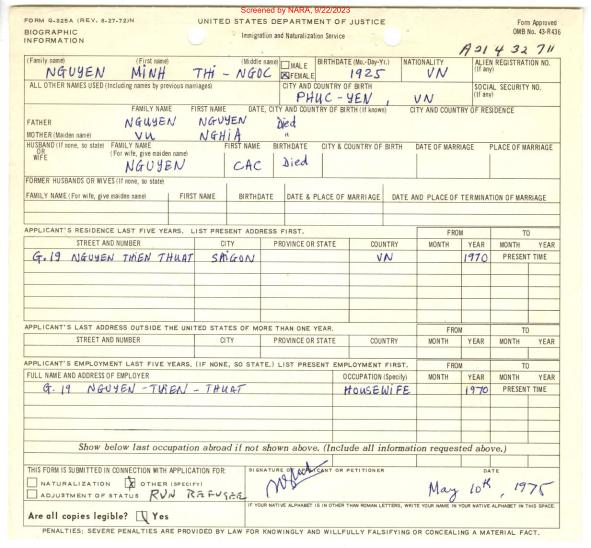 Screened by NARA, 9/22/2023
FORM G-325A (REV. 8-27-72)N
UNITED STATES DEPARTMENT OF JUSTICE
Form Approved
OMB No. 43-R436
BIOGRAPHIC
INFORMATION
Immigration and Naturalization Service
A21 432 711
(Family name) (First name) (Middle name) MALE FEMALE BIRTHDATE (Mo.-Day-Yr.) NATIONALITY ALIEN REGISTRATION NO. (If any)
NGUYEN MINH THI - NGOC 1925 VN
ALL OTHER NAMES USED (Including names by previous marriages) CITY AND COUNTRY OF BIRTH SOCIAL SECURITY NO. (If any)
PHUC-YEN, VN
FAMILY NAME FIRST NAME DATE, CITY AND COUNTRY OF BIRTH (If known) CITY AND COUNTRY OF RESIDENCE
FATHER NGUYEN NGUYEN Died
MOTHER (Maiden name) VU NGHIA "
HUSBAND (If none, so state) OR WIFE FAMILY NAME (For wife, give maiden name) FIRST NAME BIRTHDATE CITY & COUNTRY OF BIRTH DATE OF MARRIAGE PLACE OF MARRIAGE
NGUYEN CAC Died
FORMER HUSBANDS OR WIVES (If none, so state)
FAMILY NAME (For wife, give maiden name) FIRST NAME BIRTHDATE DATE & PLACE OF MARRIAGE DATE AND PLACE OF TERMINATION OF MARRIAGE
APPLICANT'S RESIDENCE LAST FIVE YEARS. LIST PRESENT ADDRESS FIRST. FROM TO
STREET AND NUMBER CITY PROVINCE OR STATE COUNTRY MONTH YEAR MONTH YEAR
G.19 NGUYEN THIEN THUAT SAIGON VN 1970 PRESENT TIME
APPLICANT'S LAST ADDRESS OUTSIDE THE UNITED STATES OF MORE THAN ONE YEAR. FROM TO
STREET AND NUMBER CITY PROVINCE OR STATE COUNTRY MONTH YEAR MONTH YEAR
APPLICANT'S EMPLOYMENT LAST FIVE YEARS. (IF NONE, SO STATE.) LIST PRESENT EMPLOYMENT FIRST. FROM TO
FULL NAME AND ADDRESS OF EMPLOYER OCCUPATION (Specify) MONTH YEAR MONTH YEAR
G. 19 NGUYEN - THIEN - THUAT HOUSEWIFE 1970 PRESENT TIME
Show below last occupation abroad if not shown above. (Include all information requested above.)
THIS FORM IS SUBMITTED IN CONNECTION WITH APPLICATION FOR: SIGNATURE OF APPLICANT OR PETITIONER DATE
NATURALIZATION OTHER (SPECIFY)
ADJUSTMENT OF STATUS RVN REFUGEE May 10th, 1975
IF YOUR NATIVE ALPHABET IS IN OTHER THAN ROMAN LETTERS, WRITE YOUR NAME IN YOUR NATIVE ALPHABET IN THIS SPACE.
Are all copies legible? Yes
PENALTIES: SEVERE PENALTIES ARE PROVIDED BY LAW FOR KNOWINGLY AND WILLFULLY FALSIFYING OR CONCEALING A MATERIAL FACT.